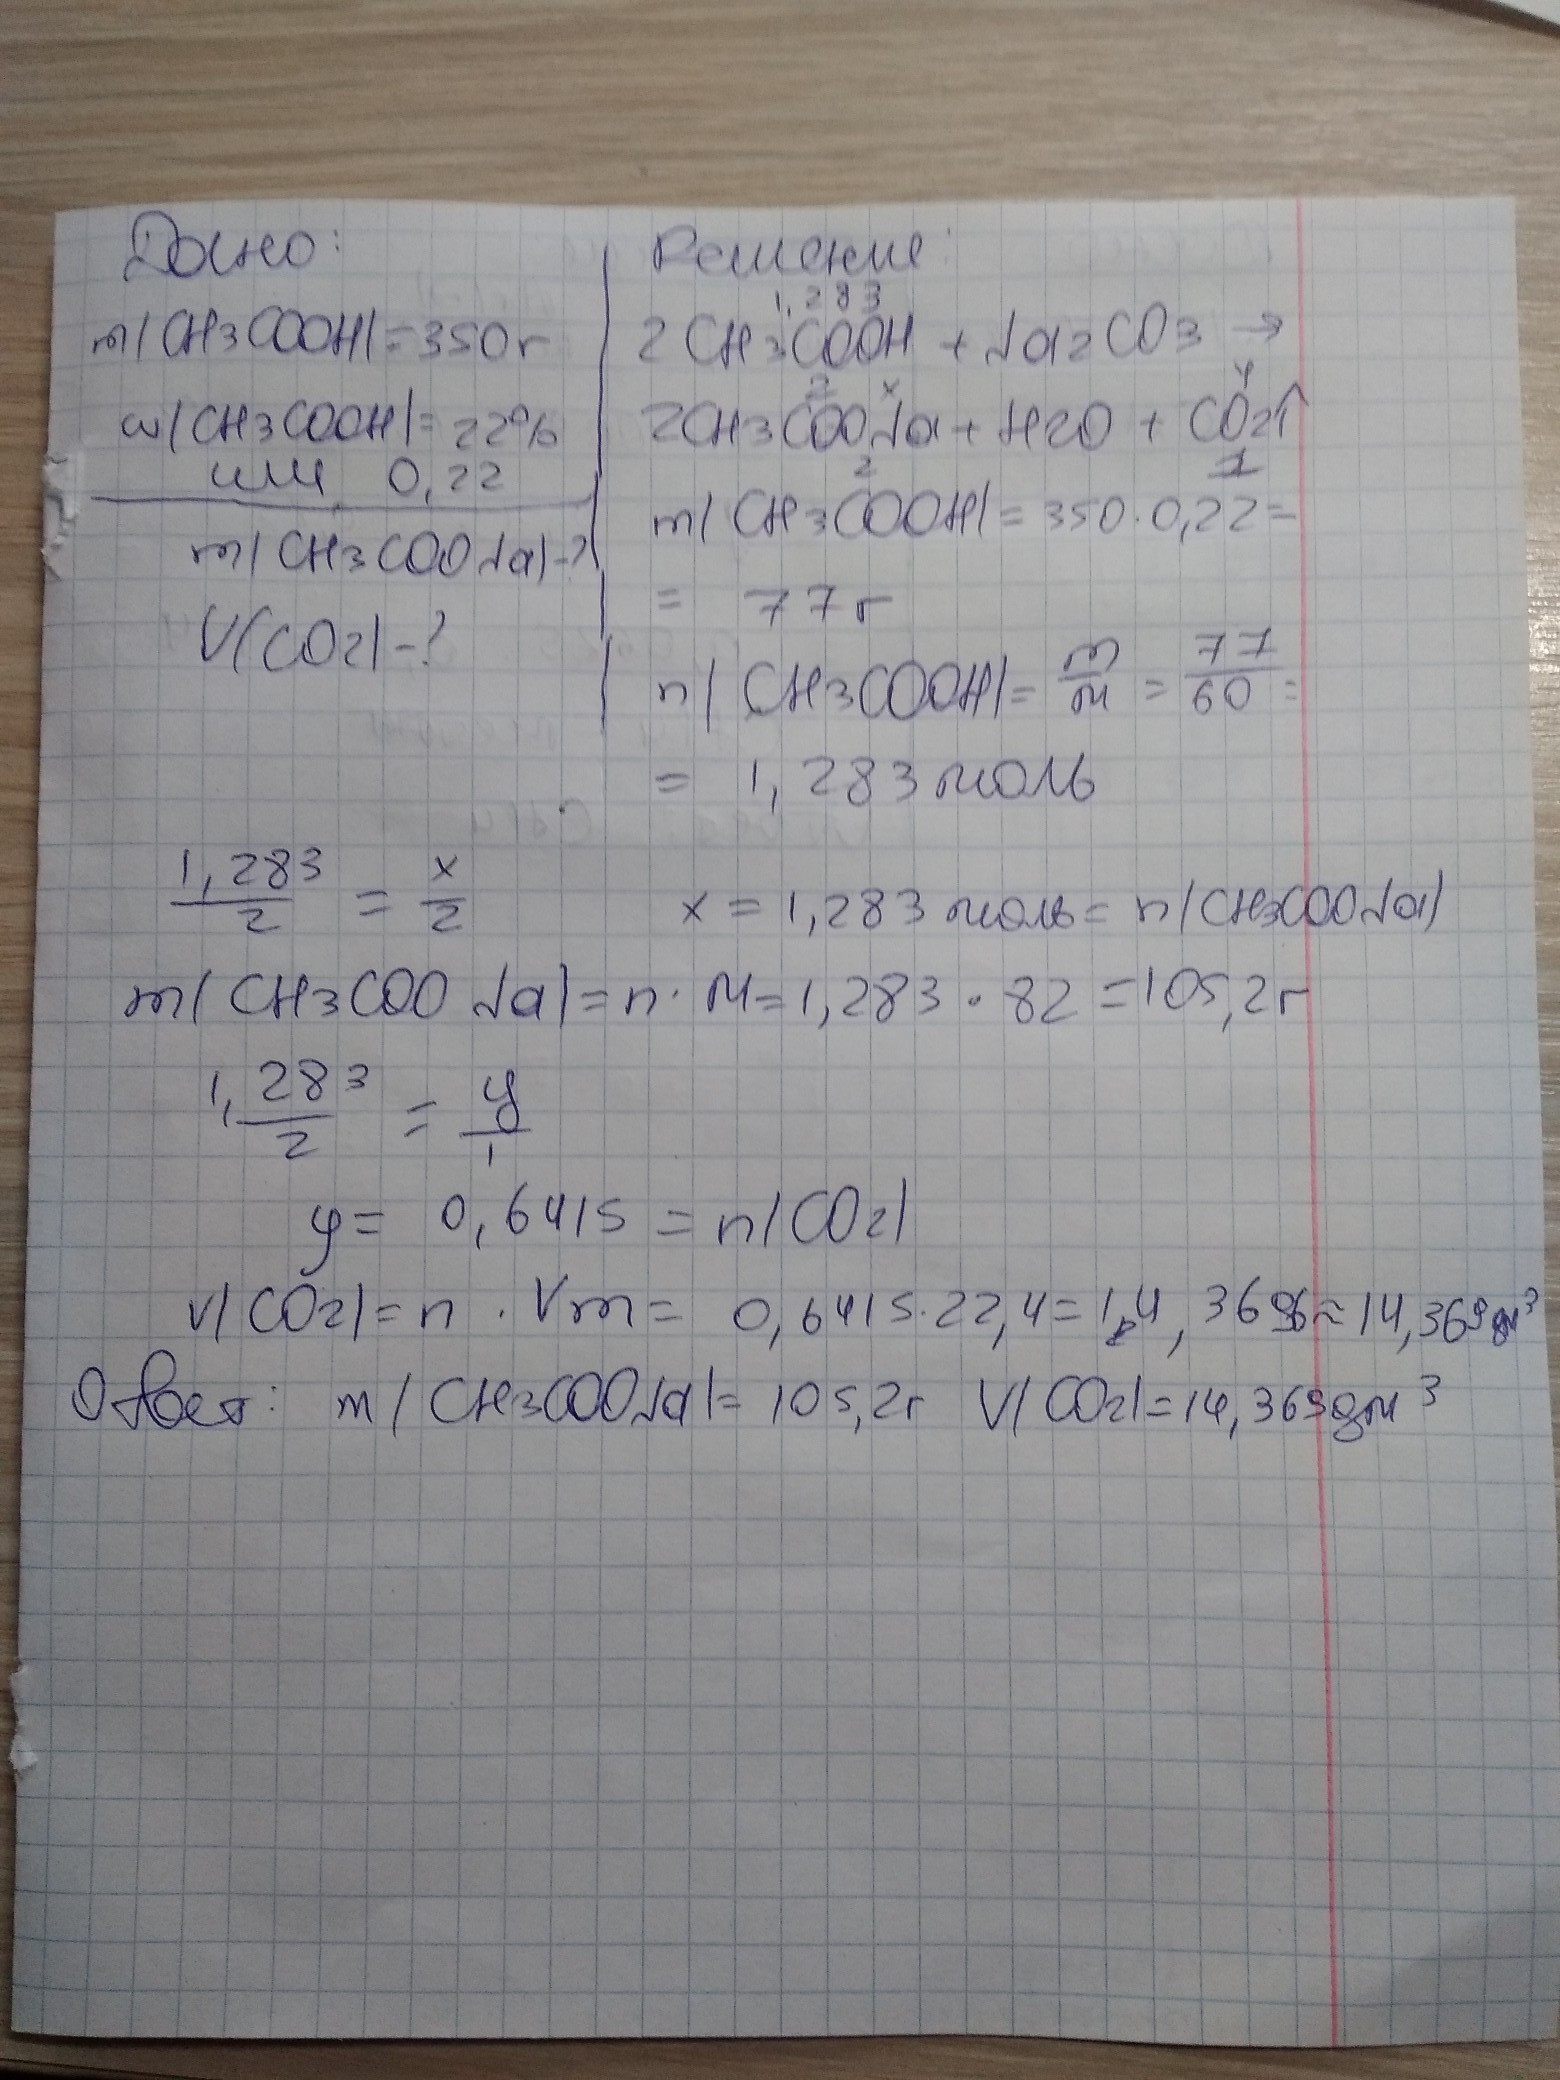 Дано:
m(CH3COOH)=350г
w(CH3COOH)=22%
или 0,22
m(CH3COONa)-?
V(CO2)-?
Решение:
1,283
2CH3COOH + Na2CO3 →
2 x y
2CH3COONa + H2O + CO2↑
2 1
m(CH3COOH)=350·0,22=
= 77г
n(CH3COOH)= m/M = 77/60 =
= 1,283 моль
1,283/2 = x/2 x = 1,283 моль = n(CH3COONa)
m(CH3COONa)=n·M=1,283·82=105,2г
1,283/2 = y/1
y= 0,6415 = n(CO2)
V(CO2)=n·Vm= 0,6415·22,4=14,3696≈14,369дм³
Ответ: m(CH3COONa)= 105,2г V(CO2)=14,369дм³